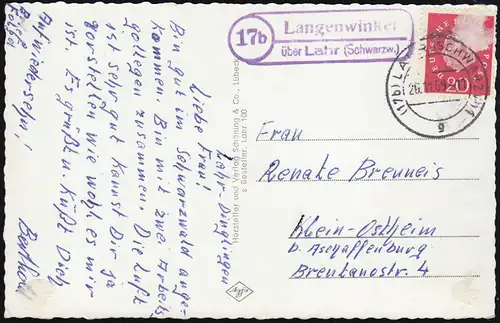 17b
Langenwinkel
über Lahr (Schwarzw.)
(17b) LAHR (SCHWARZW)
26.11.60
g
DEUTSCHE
20
Lahr-Dinglingen
Liebe Frau!
Bin gut im Schwarzwald ange-
kommen. Bin mit zwei Arbeits
gollegen zusammen. Die Luft
ist sehr gut kannst Dir ja
vorstellen wie wohl es mir
ist. Es grüßen. Küßt Dich
Auf wiedersehn!
Hersteller und Verlag Schöning & Co., Lübeck
s Bestellnr. Lahr 100
Agfa
Frau
Renate Brenneis
Klein-Ostheim
b. Aschaffenburg
Brentanostr. 4